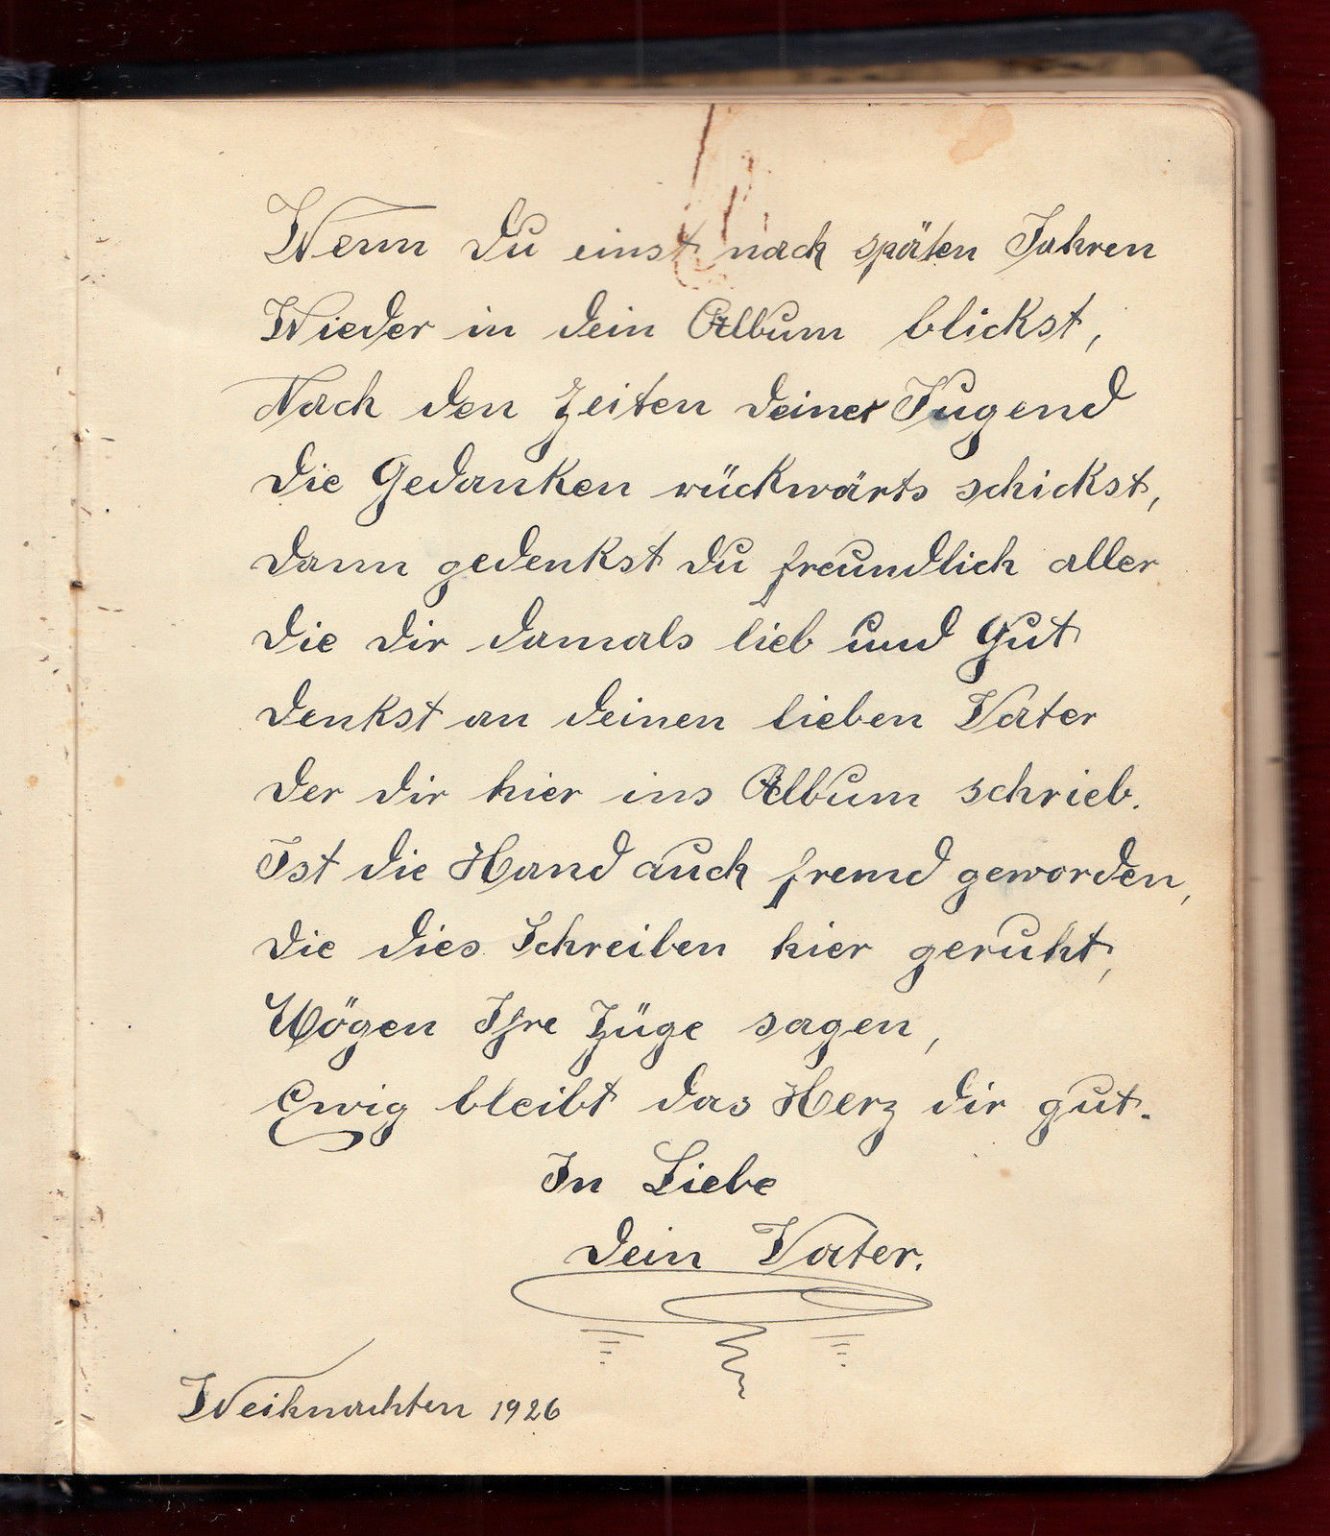 Wenn Du einst nach späten Jahren
Wieder in dein Album blickst,
Nach den Zeiten deiner Jugend
Die Gedanken rückwärts schickst,
Dann gedenkst Du freundlich aller
Die dir damals lieb und Gut
Denkst an deinen lieben Vater
Der dir hier ins Album schrieb.
Ist die Hand auch fremd geworden,
Die dies Schreiben hier geruht,
Mögen Ihre Züge sagen,
Ewig bleibt das Herz dir gut.
In Liebe
Dein Vater.
Weihnachten 1926